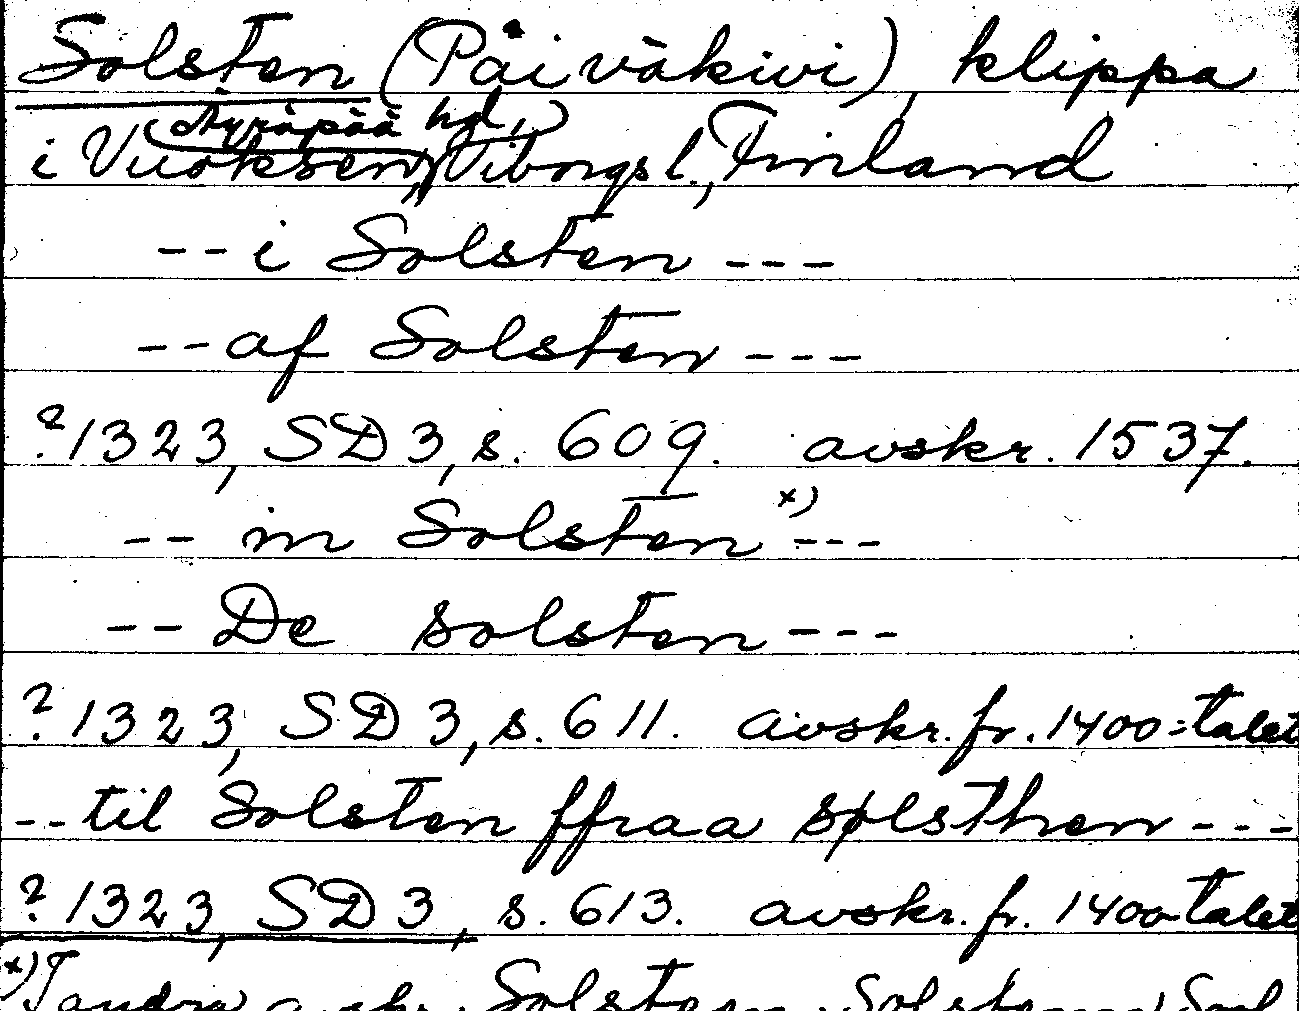 Solsten (Päiväkivi), klippa
Äyräpää hd,
i Vuoksen, Viborgs l., Finland
-- i Solsten ---
-- af Solsten ---
? 1323, SD 3, s. 609. avskr. 1537.
-- in Solsten x) ---
-- De solsten ---
? 1323, SD 3, s. 611. avskr. fr. 1400-talet
-- til Solsten ffraa sølsthen ---
? 1323, SD 3, s. 613. avskr. fr. 1400-talet
x) I andra avskr. Solsten, Solsten